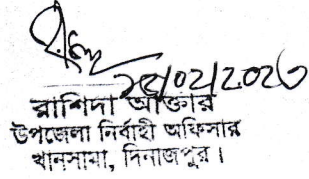 ২৫/০২/২০২৩
রাশিদা আক্তার
উপজেলা নির্বাহী অফিসার
খানসামা, দিনাজপুর।